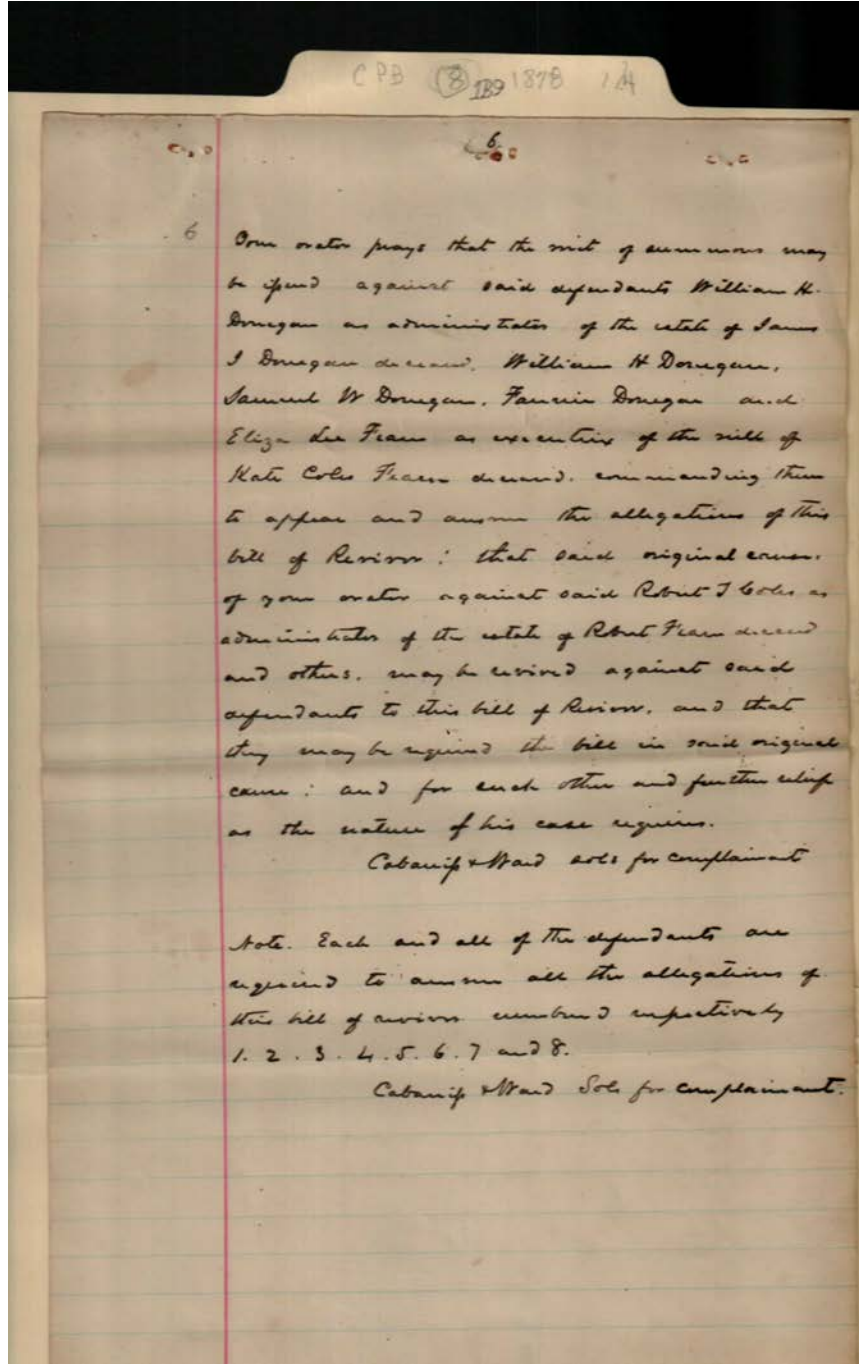 CPB 8 1B9 1878
6
6 Your orator prays that the writ of summons may
be issued against said defendants William H.
Donegan as administrator of the estate of James
J Donegan deceased. William H Donegan,
Samuel W Donegan. Fannie Donegan and
Eliza Lee Fearn as executrix of the will of
Kate Coles Fearn deceased. commanding them
to appear and answer the allegations of this
bill of Revivor: that said original cause.
of your orator against said Robert T Coles as
administrator of the estate of Robert Fearn deceased
and others. may be revived against said
defendants to this bill of Revivor. and that
they may be required the bill in said original
cause: and for such other and further relief
as the nature of his case requires.
Cabaniss & Ward sols for complainant
Note. Each and all of the defendants are
required to answer all the allegations of
this bill of revivor numbered respectively
1. 2. 3. 4. 5. 6. 7 and 8.
Cabaniss & Ward Sols for complainant.